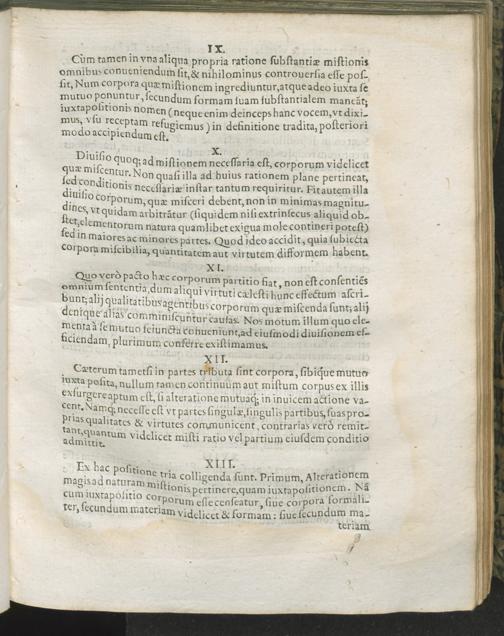 IX.
Cùm tamen in vna aliqua propria ratione substantiæ mistionis
omnibus conueniendum sit, & nihilominus controuersia esse pos-
sit, Num corpora quæ mistionem ingrediuntur, atque adeo iuxta se
mutuo ponuntur, secundum formam suam substantialem maneāt;
iuxtapositionis nomen (neque enim deinceps hanc vocem, vt dixi-
mus, vsu receptam refugiemus) in definitione tradita, posteriori
modo accipiendum est.
X.
Diuisio quoq; ad mistionem necessaria est, corporum videlicet
quæ miscentur. Non quasi illa ad huius rationem plane pertineat,
sed conditionis necessariæ instar tantum requiritur. Fit autem illa
diuisio corporum, quæ misceri debent, non in minimas magnitu-
dines, vt quidam arbitrātur (siquidem nisi extrinsecus aliquid ob-
stet, elementorum natura quamlibet exigua mole contineri potest)
sed in maiores ac minores partes. Quod ideo accidit, quia subiecta
corpora miscibilia, quantitatem aut virtutem difformem habent.
XI.
Quo verò pacto hæc corporum partitio fiat, non est consentiēs
omnium sententia, dum aliqui virtuti cælesti hunc effectum ascri-
bunt; alij qualitatibus agentibus corporum quæ miscenda sunt; alij
denique alias comminiscuntur causas. Nos motum illum quo ele-
menta à se mutuo seiuncta conueniunt, ad eiusmodi diuisionem ef-
ficiendam, plurimum conferre existimamus.
XII.
Cæterum tametsi in partes tributa sint corpora, sibique mutuo
iuxta posita, nullum tamen continuum aut mistum corpus ex illis
exsurgere aptum est, si alteratione mutuaq; in inuicem actione va-
cent. Namq; necesse est vt partes singulæ, singulis partibus, suas pro-
prias qualitates & virtutes communicent, contrarias verò remit-
tant, quantum videlicet misti ratio vel partium eiusdem conditio
admittit.
XIII.
Ex hac positione tria colligenda sunt. Primum, Alterationem
magis ad naturam mistionis pertinere, quam iuxtapositionem. Nā
cum iuxtapositio corporum esse censeatur, siue corpora formali-
ter, secundum materiam videlicet & formam: siue secundum ma-
teriam